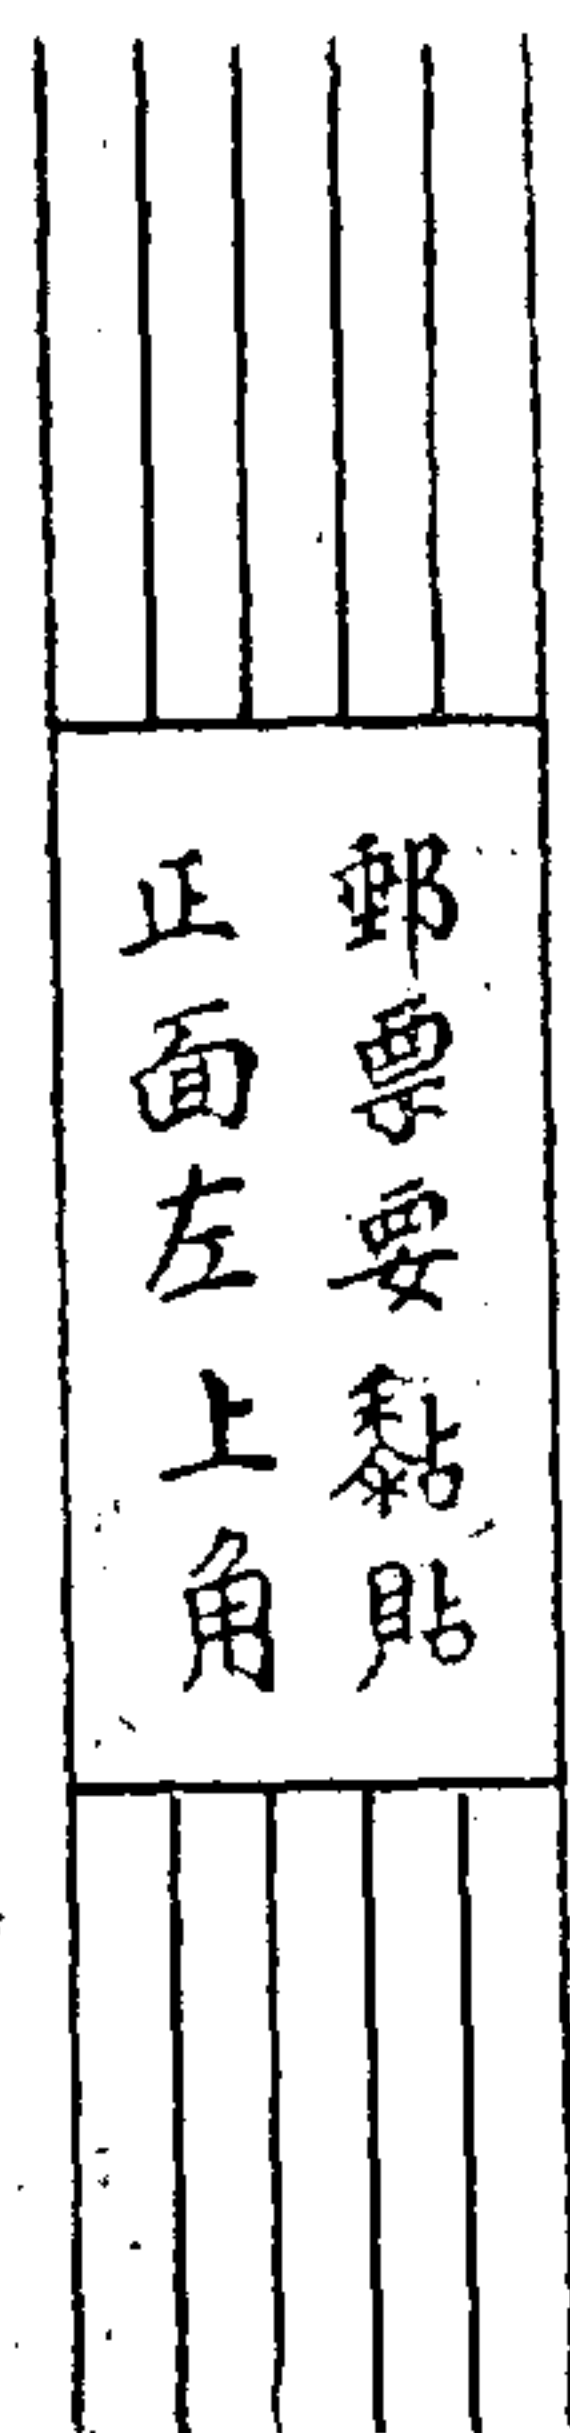 郵票要黏貼
正面左上角